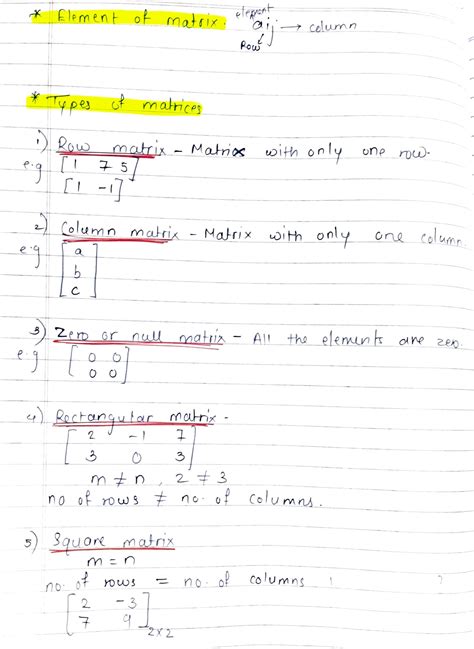 * Element of matrix. element aij → column
Row
* Types of matrices
1) Row matrix - Matrix with only one row.
e.g [1 7 5]
[1 -1]
2) Column matrix - Matrix with only one column
e.g [a
b
c]
3) Zero or null matrix - All the elements are zero.
e.g [0 0
0 0]
4) Rectangular matrix -
[2 -1 7
3 0 3]
m ≠ n , 2 ≠ 3
no of rows ≠ no. of columns.
5) Square matrix
m = n
no. of rows = no. of columns
[2 -3
7 9]2x2